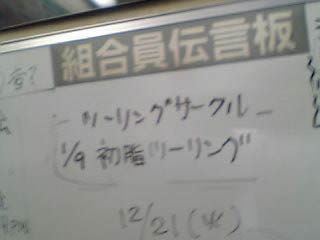 組合員伝言板
ツーリングサークル
1/9 初脂ツーリング
12/21(水)